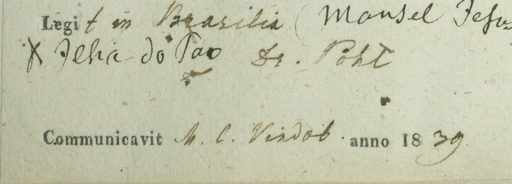 Legit in Brasilia (Mansel Jesu-
X Ilha do Pao Dr. Pohl
Communicavit M. C. Vindob anno 1839